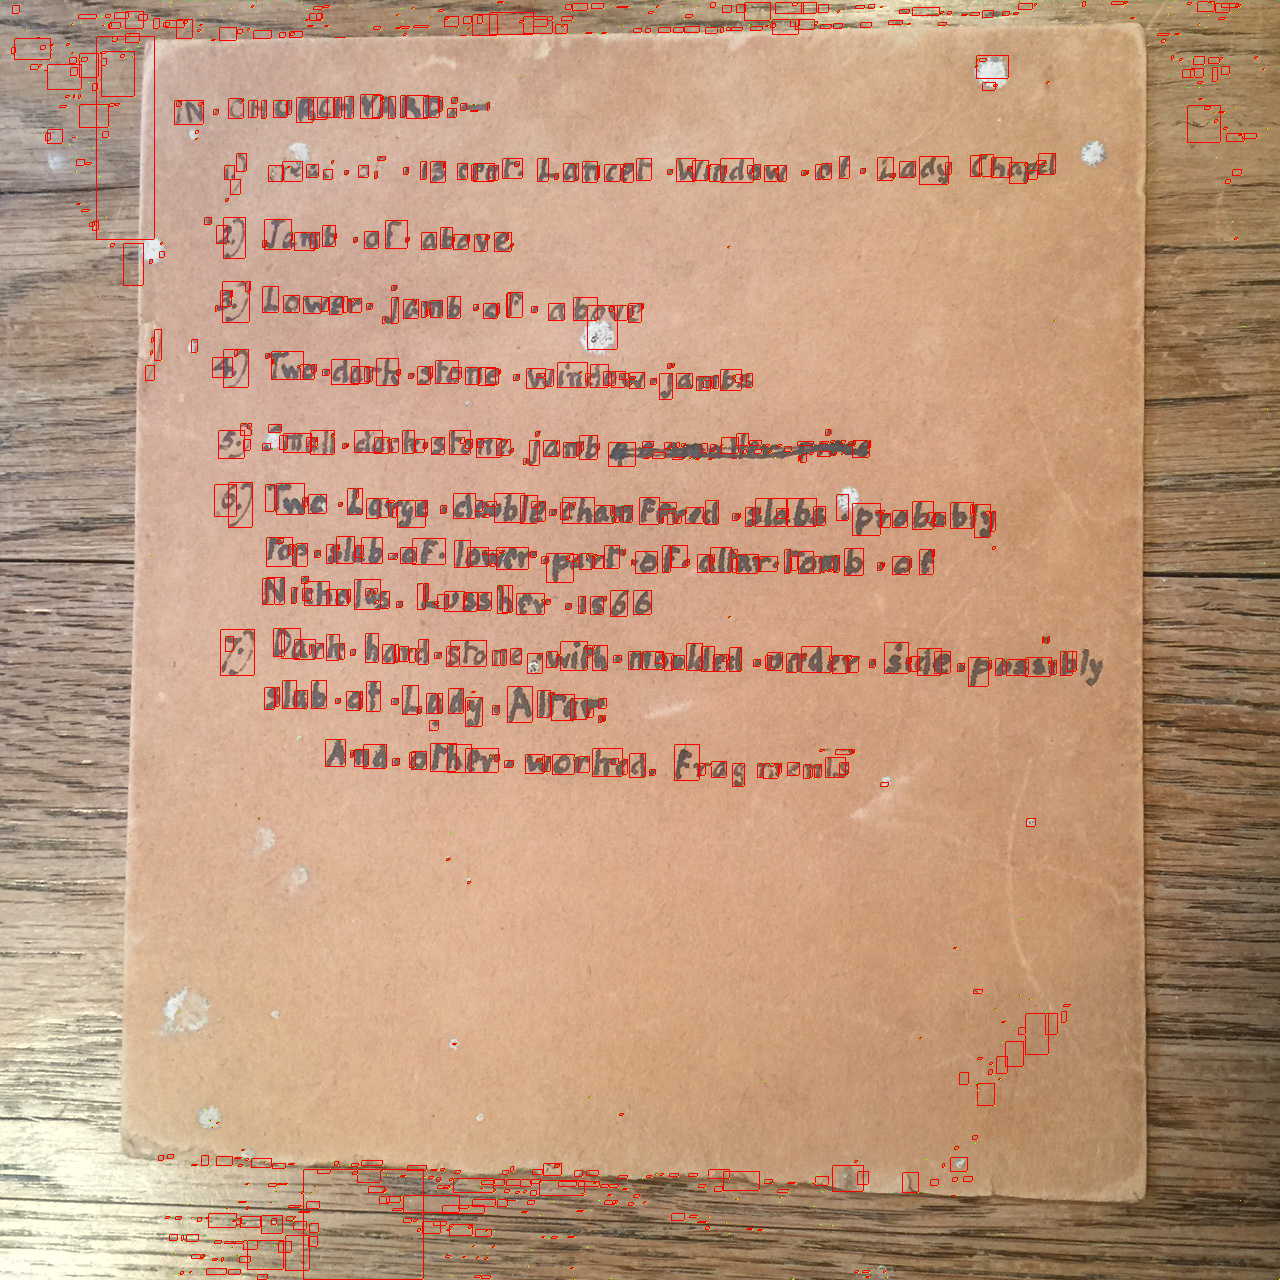 IN · CHURCHYARD:—
1) Head · of · 13 cent. Lancet · Window · of · Lady Chapel
2) Jamb · of · above
3) Lower · jamb · of · above
4) Two · dark · stone · window · jambs
5) Small · dark · stone jamb
6) Two · Large · double · chamfered · slabs · probably
Top · slab · of · lower · part · of · altar · Tomb · of
Nicholas. Lussher · 1566
7) Dark · hard · stone · with · moulded · under · side · possibly
slab · of · Lady · Altar:
And · other · worked. Fragments